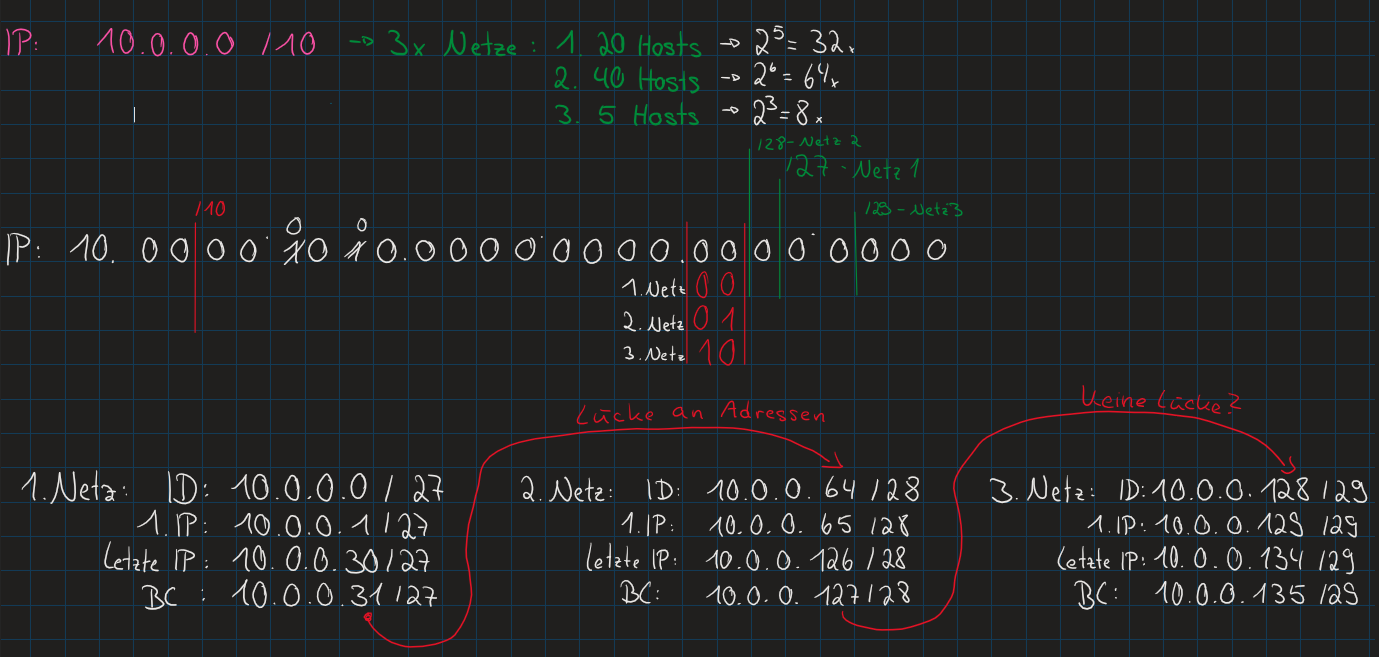 IP: 10.0.0.0 /10 → 3x Netze: 1. 20 Hosts → 2⁵ = 32x
2. 40 Hosts → 2⁶ = 64x
3. 5 Hosts → 2³ = 8x
128-Netz 2
127 - Netz 1
/10
129 - Netz 3
0 0
IP: 10. 00 00 10 10.0000 0000.00 00 0000
1.Netz 00
2.Netz 01
3.Netz 10
Lücke an Adressen
Keine Lücke?
1.Netz: ID: 10.0.0.0 / 27
1.IP: 10.0.0.1 /27
Letzte IP: 10.0.0.30/27
BC : 10.0.0.31 /27
2.Netz: ID: 10.0.0.64 /28
1.IP: 10.0.0.65 /28
Letzte IP: 10.0.0.126 /28
BC: 10.0.0.127/28
3.Netz: ID: 10.0.0.128 /29
1.IP: 10.0.0.129 /29
Letzte IP: 10.0.0.134 /29
BC: 10.0.0.135 /29